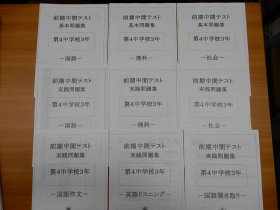 前期中間テスト
基本問題集
第4中学校3年
－国語－
前期中間テスト
基本問題集
第4中学校3年
－理科－
前期中間テスト
基本問題集
第4中学校3年
－社会－
前期中間テスト
実践問題集
第4中学校3年
－国語－
前期中間テスト
実践問題集
第4中学校3年
－理科－
前期中間テスト
実践問題集
第4中学校3年
－社会－
前期中間テスト
実践問題集
第4中学校3年
－国語作文－
前期中間テスト
実践問題集
第4中学校3年
－国語リスニング－
前期中間テスト
実践問題集
第4中学校3年
－国語聞き取り－